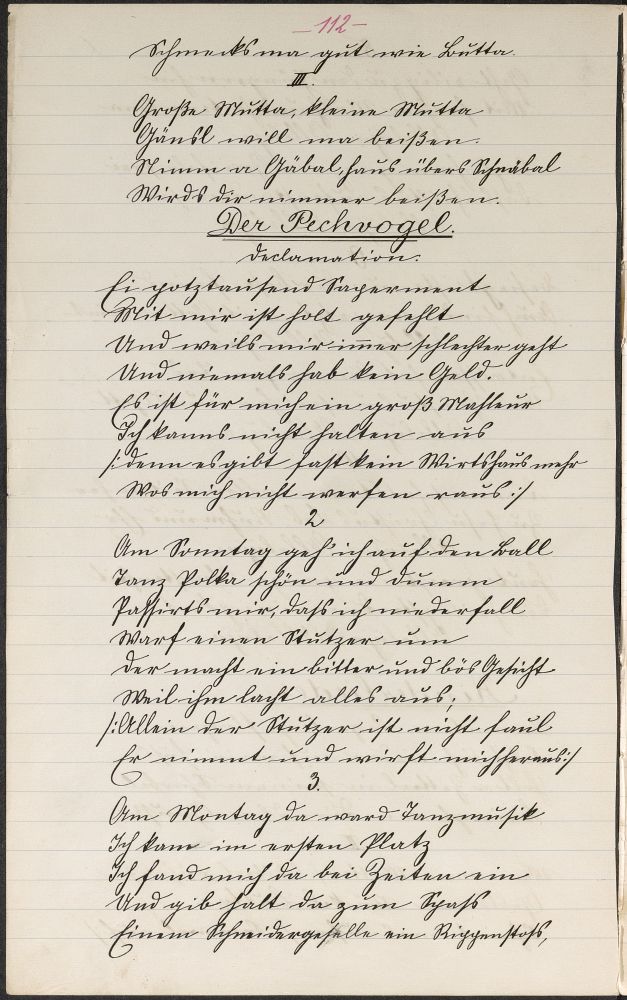 - 112 -
Schmeckts ma gut wie Butta.
III.
Große Mutta, kleine Mutta
Gänsl will ma beißen.
Nimm a Gäbal, haus übers Schnäbal
Wirds dir nimmer beißen.
Der Pechvogel.
Declamation.
Ei potztausend Saperment
Mit mir ist holt gefehlt
Und weils mir immer schlechter geht
Und niemals hab kein Geld.
Es ist für mich ein groß Mahleur
Ich kanns nicht halten aus
/: denn es gibt fast kein Wirtshaus mehr
Wos mich nicht werfen raus :/
2
Am Sonntag geh' ich auf den Ball
Tanz Polka schön und dumm
Passirts mir, dass ich niederfall
Warf einen Stutzer um
Der macht ein bitter und bös Gesicht
Weil ihm lacht alles aus;
/: Allein der Stutzer ist nicht faul
Er nimmt und wirft mich heraus :/
3.
Am Montag da ward Tanzmusik
Ich kam im ersten Platz
Ich fand mich da bei Zeiten ein
Und gib halt da zum Spass
Einem Schneidergeselle ein Rippenstoss,